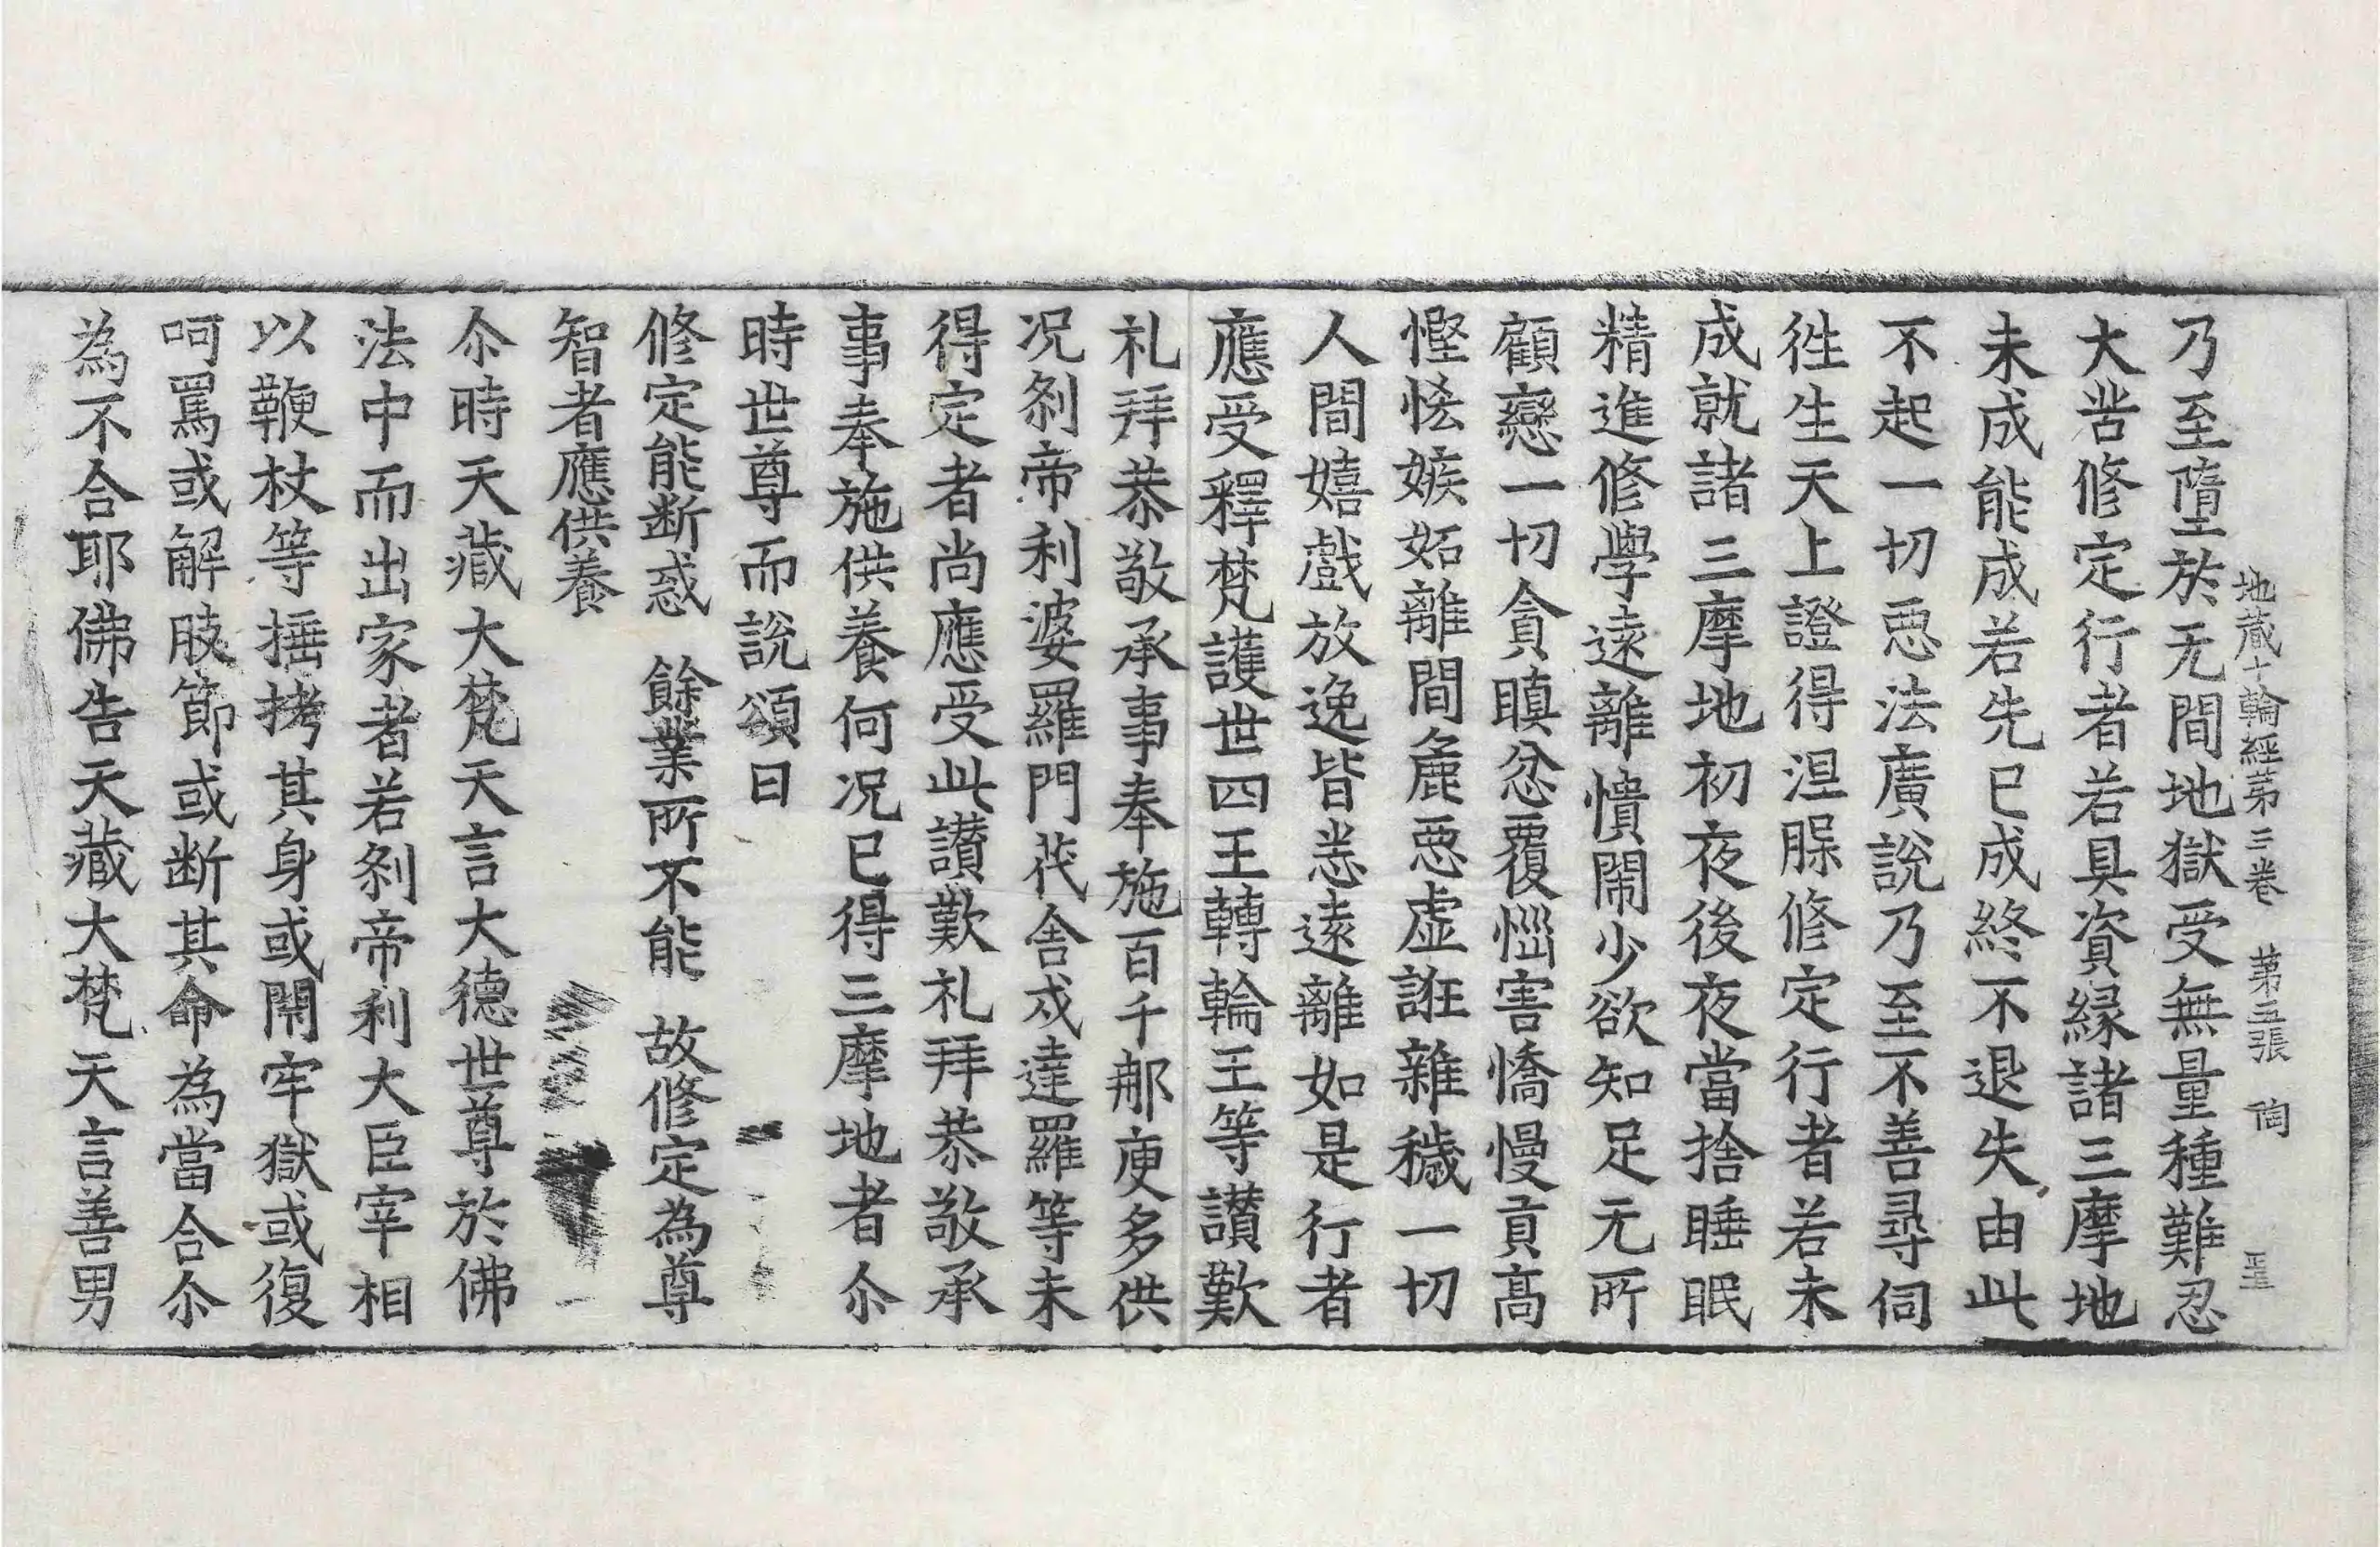 地藏十輪經第三卷 第三張 陶 𦤺
乃至墮於无間地獄受無量種難忍
大苦修定行者若具資緣諸三摩地
未成能成若先已成終不退失由此
不起一切惡法廣說乃至不善尋伺
徃生天上證得涅槃修定行者若未
成就諸三摩地初夜後夜當捨睡眠
精進修學遠離憒閙少欲知足无所
顧戀一切貪瞋忿覆惱害憍慢貢高
慳悋嫉妬離間麁惡虛誑雜穢一切
人間嬉戲放逸皆悉遠離如是行者
應受釋梵護世四王轉輪王等讃歎
礼拜恭敬承事奉施百千那庾多供
况刹帝利婆羅門茷舍戍達羅等未
得定者尚應受此讃歎礼拜恭敬承
事奉施供養何况已得三摩地者尒
時世尊而說頌曰
修定能断惑 餘業所不能 故修定為尊
智者應供養
尒時天藏大梵天言大德世尊於佛
法中而出家者若刹帝利大臣宰相
以鞭杖等捶拷其身或閇牢獄或復
呵罵或解肢節或断其命為當合尒
為不合耶佛告天藏大梵天言善男